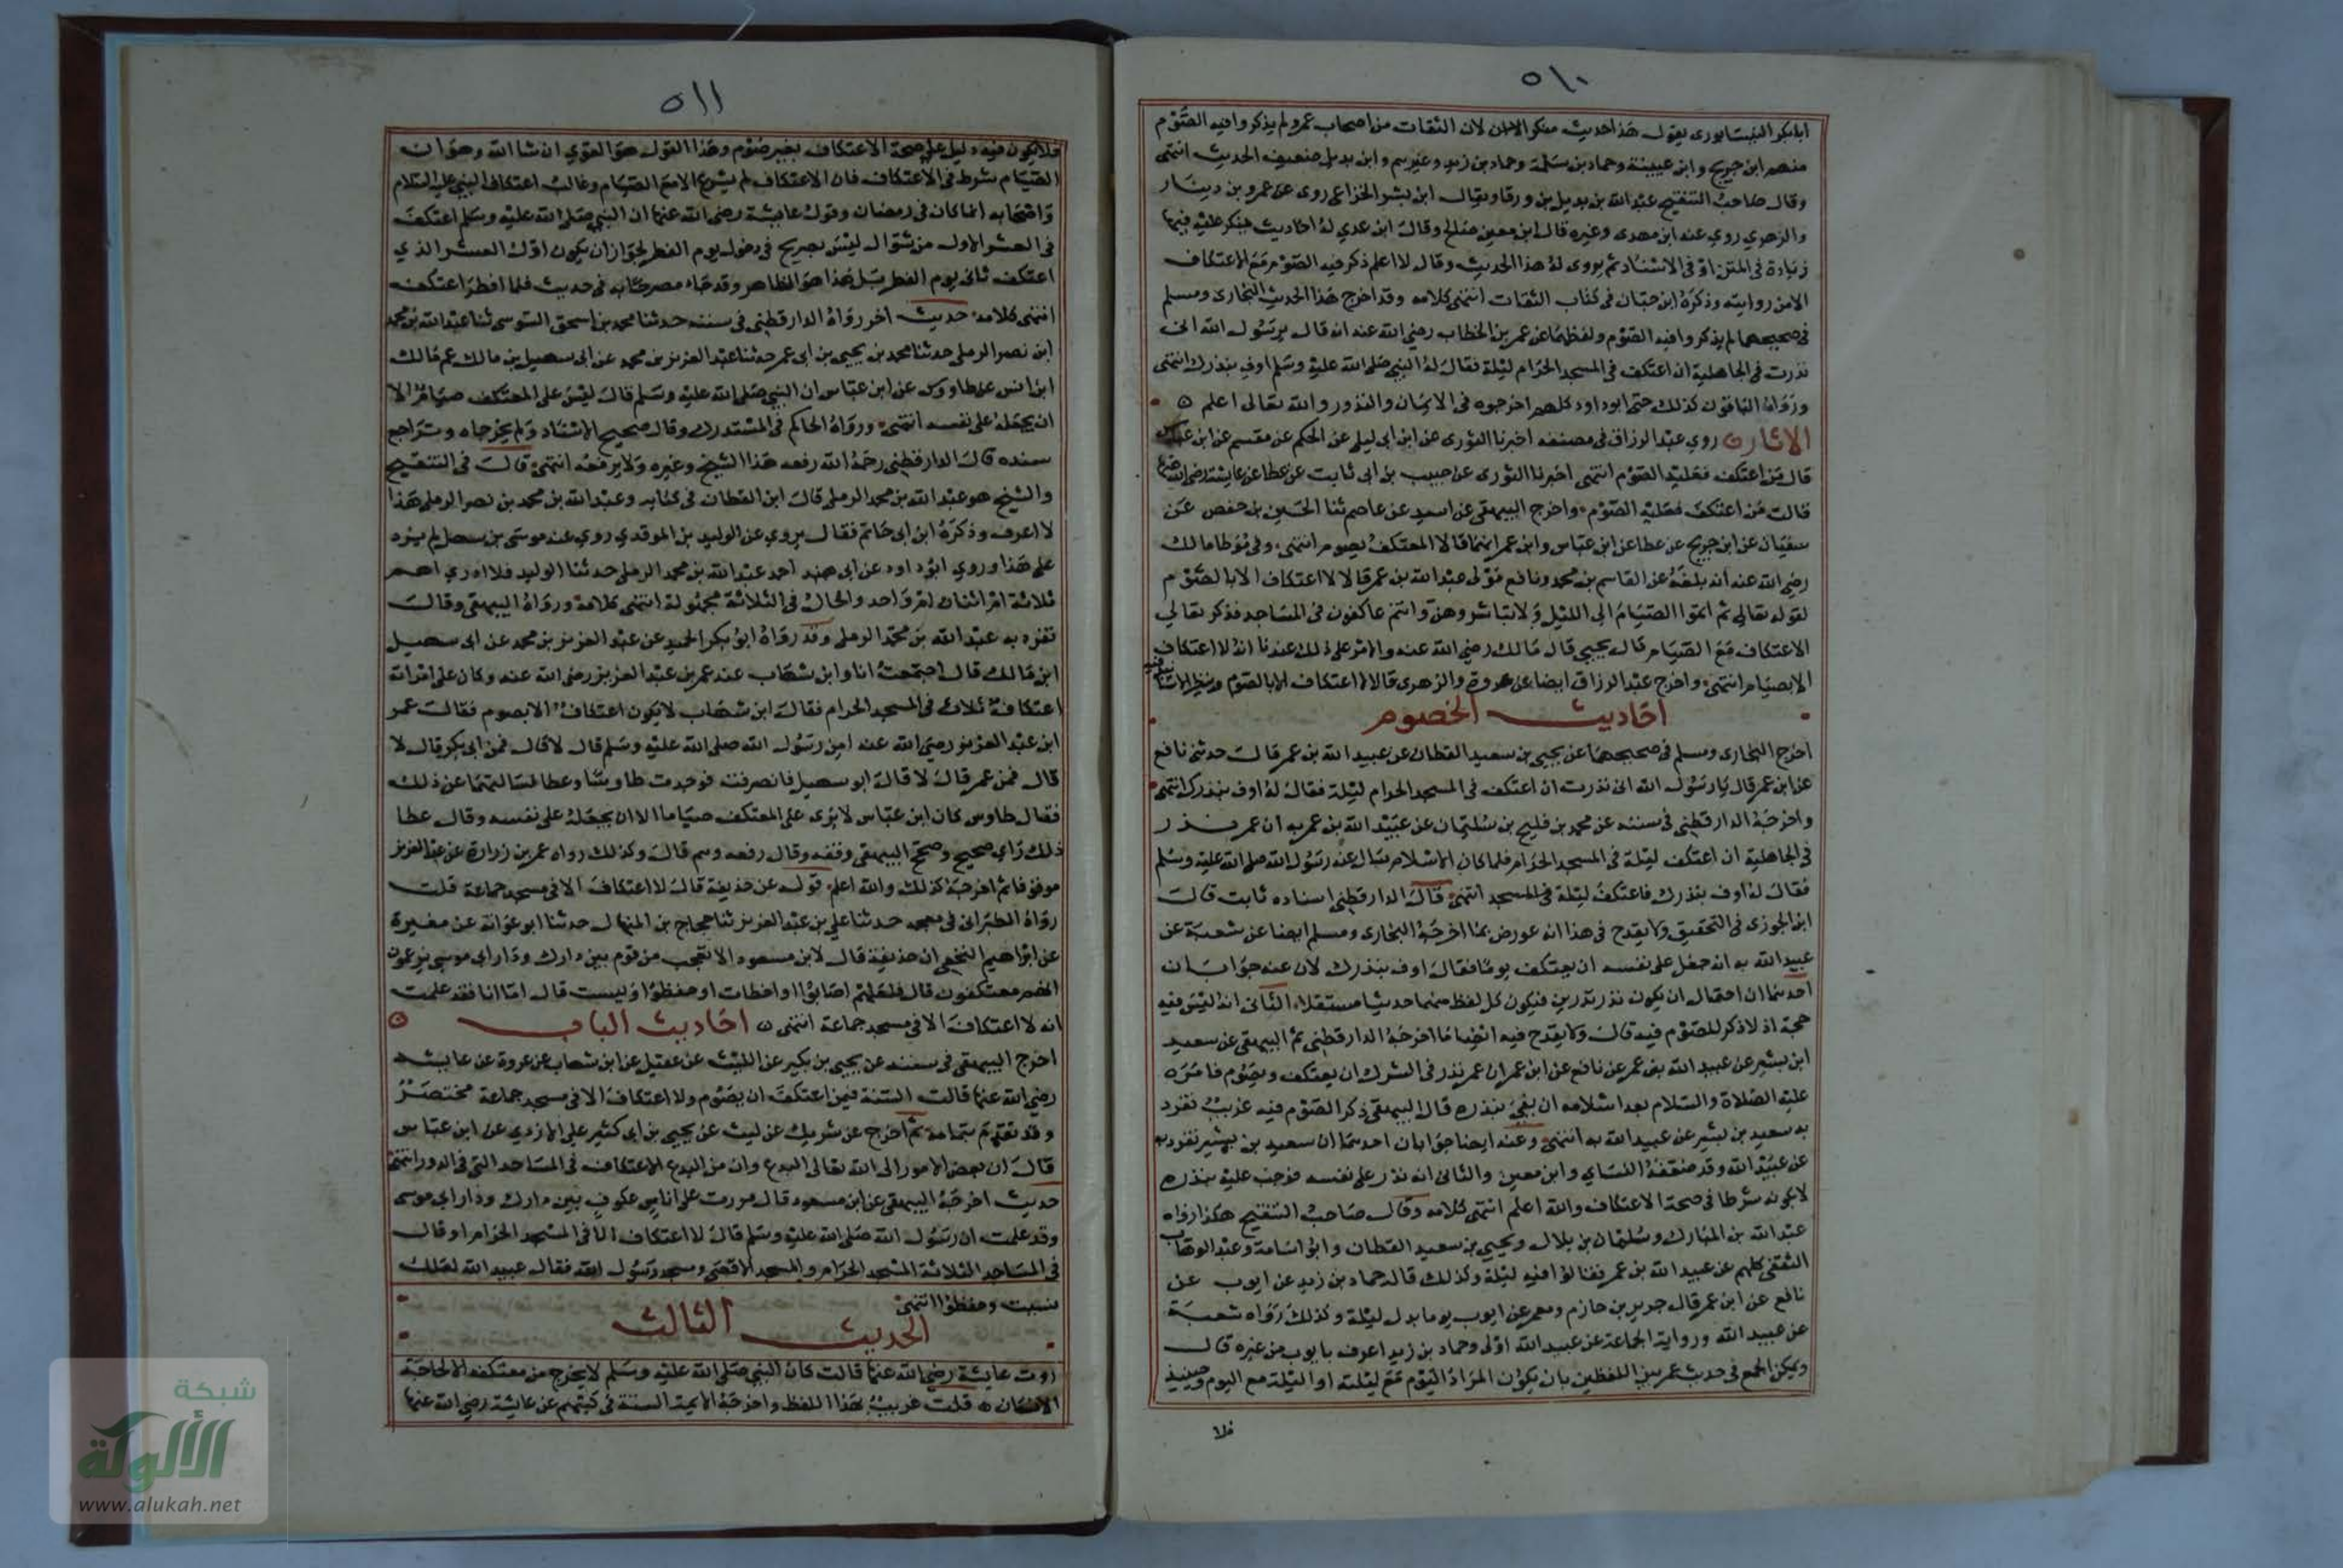 ٥١٠
ابا بكر النيسابورى يقول هذا حديث منكر لان الثقات من اصحاب عمرو لم يذكروا فيه الصوم
منهم ابن جريج وابن عيينة وحماد بن سلمة وحماد بن زيد وغيرهم وابن بديل ضعيف الحديث انتهى
وقال صاحب التنقيح عبد الله بن بديل بن ورقا ويقال ابن بشر الخزاعى روى عن عمرو بن دينار
والزهري روى عنه ابن مهدى وغيره قال ابن معين صالح وقال ابن عدي له احاديث مما ينكر عليه فيها
زيادة فى المتن او فى الاسناد ثم روى له هذا الحديث وقال لا اعلم ذكر فيه الصوم مع الاعتكاف
الا من روايته وذكره ابن حبان فى كتاب الثقات انتهى كلامه وقد اخرج هذا الحديث البخارى ومسلم
فى صحيحهما لم يذكروا فيه الصوم ولفظهما عن عمر بن الخطاب رضي الله عنه انه قال يرسول الله انى
نذرت فى الجاهلية ان اعتكف فى المسجد الحرام ليلة فقال له النبي صلى الله عليه وسلم اوف بنذرك انتهى
ورواه الباقون كذلك حتى ابو داود كلهم اخرجوه فى الايمان والنذور والله تعالى اعلم ه
الاثار روي عبد الرزاق فى مصنفه اخبرنا الثورى عن ابن ابى ليلى عن الحكم عن مقسم عن ابن عباس
قال من اعتكف فعليه الصوم انتهى اخبرنا الثورى عن حبيب بن ابى ثابت عن عطا عن عايشة رضى الله عنها
قالت من اعتكف فعليه الصوم واخرج البيهقى عن اسيد عن عاصم ثنا الحسين بن حفص عن
سفيان عن ابن جريج عن عطا عن ابن عباس وابن عمر انهما قالا المعتكف يصوم انتهى وفى موطا مالك
رضي الله عنه انه بلغه عن القاسم بن محمد ونافع مولى عبد الله بن عمر قالا لا اعتكاف الا بالصوم
لقوله تعالى ثم اتموا الصيام الى الليل ولا تباشروهن وانتم عاكفون فى المساجد فذكر تعالي
الاعتكاف مع الصيام قال يحيى قال مالك رضي الله عنه والامر على ذلك عندنا انه لا اعتكاف
الا بصيام انتهى واخرج عبد الرزاق ايضا عن عروة والزهرى قالا لا اعتكاف الا بالصوم
احاديث الخصوم
اخرج البخارى ومسلم فى صحيحهما عن يحيى بن سعيد القطان عن عبيد الله بن عمر قالت حدثنى نافع
عن ابن عمر قال يا رسول الله انى نذرت ان اعتكف فى المسجد الحرام ليلة فقال له اوف بنذرك انتهى
واخرجه الدارقطنى فى سننه عن محمد بن فليح بن سليمان عن عبيد الله بن عمر به ان عمر نذر
فى الجاهلية ان اعتكف ليلة فى المسجد الحرام فلما كان الاسلام سال عنه رسول الله صلى الله عليه وسلم
فقال له اوف بنذرك فاعتكف ليلة فى المسجد انتهى قال الدارقطنى اسناده ثابت قالت
ابن الجوزى فى التحقيق ولا يقدح فى هذا انه عورض بما اخرجه البخارى ومسلم ايضا عن شعبة عن
عبيد الله به انه جعل على نفسه ان يعتكف يوما فقال اوف بنذرك لان عنه جوابان
احدهما ان احتمال ان يكون نذر نذرين فيكون كل لفظ منهما حديثا مستقلا الثانى انه ليس فيه
حجة اذ لا ذكر للصوم فيه قال ولا يقدح فيه ايضا ما اخرجه الدارقطنى ثم البيهقى عن سعيد
ابن بشير عن عبيد الله بن عمر عن نافع عن ابن عمر ان عمر نذر فى الشرك ان يعتكف ويصوم فامره
عليه الصلاة والسلام بعد اسلامه ان يفي بنذره قال البيهقى ذكر الصوم فيه غريب تفرد
به سعيد بن بشير عن عبيد الله به انتهى وعنه ايضا جوابان احدهما ان سعيد بن بشير تفرد به
عن عبيد الله وقد ضعفه النساي وابن معين والثانى انه نذر على نفسه فوجب عليه بنذره
لا بكونه شرطا فى صحة الاعتكاف والله اعلم انتهى كلامه وقال صاحب التنقيح هكذا رواه
عبد الله بن المبارك وسليمان بن بلال ويحيي بن سعيد القطان وابو اسامة وعبد الوهاب
الثقفى كلهم عن عبيد الله بن عمر فقالوا فيه ليلة وكذلك قاله حماد بن زيد عن ايوب عن
نافع عن ابن عمر قال جرير بن حازم ومعمر عن ايوب يوما بدل ليلة وكذلك رواه شعبة
عن عبيد الله ورواية الجماعة عن عبيد الله اولى وحماد بن زيد اعرف بايوب من غيره قال
ويمكن الجمع فى حديث عمر بين اللفظين بان يكون المراد اليوم مع ليلته او الليلة مع اليوم وحينيذ
فلا
٥١١
فلا يكون فيه دليل على صحة الاعتكاف بغير صوم وهذا القول هو القوي ان شا الله وهو ان
الصيام شرط فى الاعتكاف فان الاعتكاف لم يشرع الا مع الصيام وغالب اعتكاف النبي عليه السلام
واصحابه انما كان فى رمضان وقول عايشة رضى الله عنها ان النبى صلى الله عليه وسلم اعتكف
فى العشر الاول من شوال ليس بصريح فى دخول يوم الفطر لجواز ان يكون اول العشر الذي
اعتكف ثانى يوم الفطر بل هذا هو الظاهر وقد جاء مصرحا به فى حديث فلما افطر اعتكف
انتهى كلامه حديث اخر رواه الدارقطنى فى سننه حدثنا محمد بن اسحق السوسى ثنا عبد الله بن محمد
ابن نصر الرملى حدثنا محمد بن يحيى بن ابى عمر حدثنا عبد العزيز بن محمد عن ابى سهيل بن مالك عم مالك
ابن انس عن طاووس عن ابن عباس ان النبى صلى الله عليه وسلم قال ليس على المعتكف صيام الا
ان يجعله على نفسه انتهى ورواه الحاكم فى المستدرك وقال صحيح الاسناد ولم يخرجاه وتراجع
سنده قال الدارقطنى رحمه الله رفعه هذا الشيخ وغيره ولا يرفعه انتهى قالت فى التنقيح
والشيخ هو عبد الله بن محمد الرملى قال ابن القطان فى كتابه وعبد الله بن محمد بن نصر الرملى هذا
لا اعرفه وذكره ابن ابى حاتم فقال يروي عن الوليد بن الموقدي روي عنه موسى بن سهل لم يزد
على هذا وروي ابو داود عن ابى احمد عبد الله بن محمد الرملى حدثنا الوليد فلا ادري اهم
ثلاثة ام اثنان ام واحد والحال فى الثلاثة مجهولة انتهى كلامه ورواه البيهقى وقالت
تفرد به عبد الله بن محمد الرملى وقد رواه ابو بكر الحميدي عن عبد العزيز بن محمد عن ابى سهيل
ابن مالك قال اجتمعت انا وابن شهاب عند عمر بن عبد العزيز رضى الله عنه وكان على امراته
اعتكاف ثلاث فى المسجد الحرام فقال ابن شهاب لا يكون اعتكاف الا بصوم فقالت عمر
ابن عبد العزيز رضى الله عنه امن رسول الله صلى الله عليه وسلم قال لا قال فمن ابى بكر قال لا
قال فمن عمر قال لا قال ابو سهيل فانصرفت فوجدت طاوسا وعطا فسالتهما عن ذلك
فقال طاوس كان ابن عباس لا يرى على المعتكف صياما الا ان يجعله على نفسه وقال عطا
ذلك راي صحيح وصحح البيهقى وقفه وقال رفعه وهم قال وكذلك رواه عمر بن زرارة عن عبد العزيز
موقوفا ثم اخرجه كذلك والله اعلم قوله عن حذيفة قال لا اعتكاف الا فى مسجد جماعة قلت
رواه الطبرانى فى معجمه حدثنا علي بن عبد العزيز ثنا حجاج بن المنهال حدثنا ابو عوانة عن مغيرة
عن ابراهيم النخعى ان حذيفة قال لابن مسعود الا تعجب من قوم بين دارك ودار ابي موسى يزعمون
انهم معتكفون قال فلعلهم اصابوا واخطات او حفظوا ونسيت قال اما انا فقد علمت
انه لا اعتكاف الا فى مسجد جماعة انتهى ه احاديث الباب ه
اخرج البيهقى فى سننه عن يحيى بن بكير عن الليث عن عقيل عن ابن شهاب عن عروة عن عايشه
رضى الله عنها قالت السنة فيمن اعتكف ان يصوم ولا اعتكاف الا فى مسجد جماعة مختصر
وقد تقدم بتمامه ثم اخرج عن شريك عن ليث عن يحيى بن ابى كثير على الازدي عن ابن عباس
قال ان بعض الامور الى الله تعالى البدع وان من البدع الاعتكاف فى المساجد التى فى الدور انتهى
حديث اخرجه البيهقى عن ابن مسعود قال مررت على اناس عكوف بين دارك ودار ابى موسى
وقد علمت ان رسول الله صلى الله عليه وسلم قال لا اعتكاف الا فى المسجد الحرام او قال
فى المساجد الثلاثة المسجد الحرام والمسجد الاقصى ومسجد رسول الله فقال عبيد الله لعلك
نسيت وحفظوا انتهى
الحديث الثالث
روت عايشة رضى الله عنها قالت كان النبى صلى الله عليه وسلم لا يخرج من معتكفه الا لحاجة
الانسان ه قلت غريب بهذا اللفظ واخرجه الايمة الستة فى كتبهم عن عايشة رضى الله عنها
شبكة
الألوكة
www.alukah.net